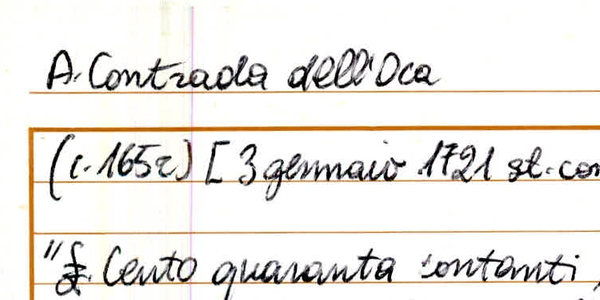 A. Contrada dell'Oca
(c. 165r) [3 gennaio 1721 st. con
"£. Cento quaranta contanti,